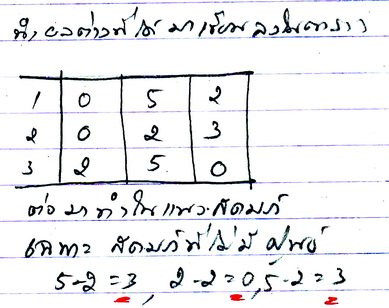 นำผลต่างที่ได้ มาเขียนลงในตาราง
1 0 5 2
2 0 2 3
3 2 5 0
ต่อมาทำในแนวสดมภ์
เฉพาะ สดมภ์ที่ไม่มี ศูนย์
5-2 =3, 2-2=0, 5-2 = 3